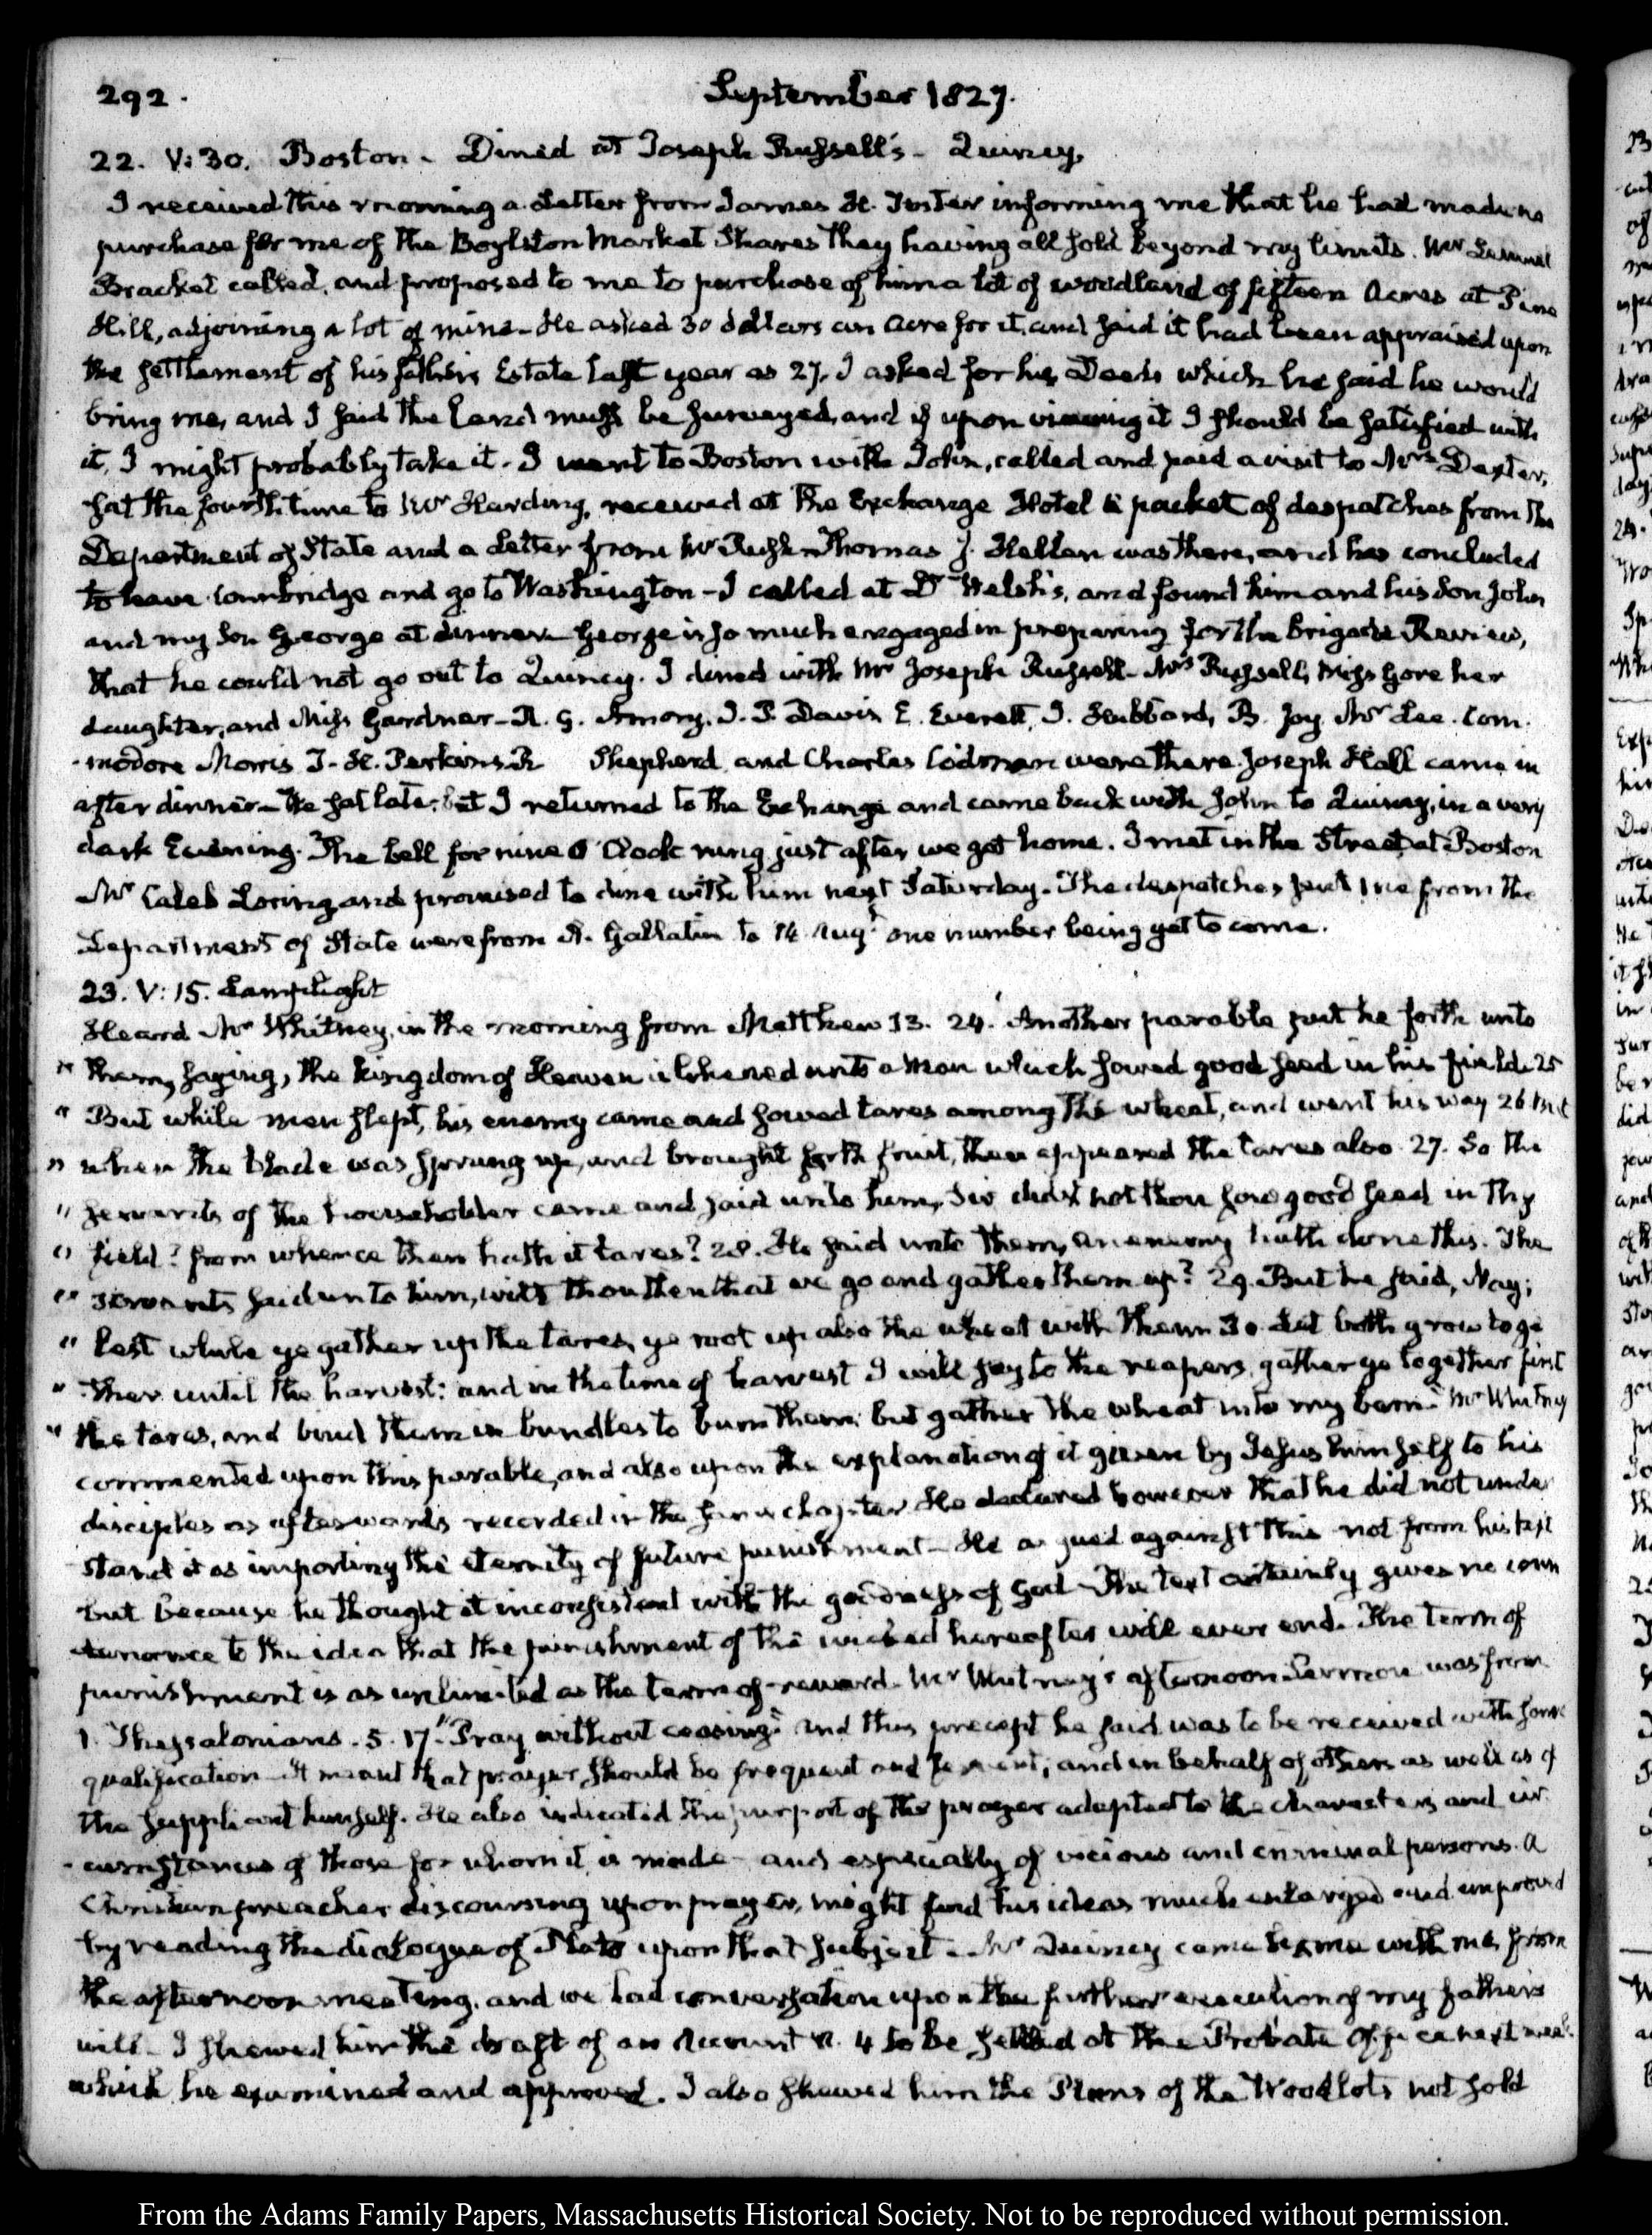 292.
September 1827.
22. V:30. Boston - Dined at Joseph Russell's - Quincy.
I received this morning a Letter from James H. Foster informing me that he had made no
purchase for me of the Boylston Market Shares they having all sold beyond my limits. Mr Lemuel
Bracket called, and proposed to me to purchase of him a lot of woodland of fifteen Acres at Pine
Hill, adjoining a lot of mine - He asked 30 dollars an Acre for it, and said it had been appraised upon
the settlement of his father's Estate last year as 27. I asked for his Deeds which he said he would
bring me, and I said the Land must be surveyed, and if upon viewing it I should be satisfied with
it, I might probably take it. I went to Boston with John, called and paid a visit to Mrs Dexter,
sat the fourth time to Mr Harding, received at the Exchange Hotel a packet of despatches from the
Department of State and a Letter from Mr Rush - Thomas J. Hellen was there, and has concluded
to leave Cambridge and go to Washington - I called at Dr Welsh's, and found him and his Son John
and my Son George at dinner. George is so much engaged in preparing for the Brigade Review,
that he could not go out to Quincy. I dined with Mr Joseph Russell - Mrs Russell, Miss Gore her
daughter, and Miss Gardner - R. G. Amory, I. P. Davis E. Everett, J. Hubbard, B. Joy, Mr Lee. Com-
-modore Morris T. H. Perkins R Shepherd and Charles Codman were there. Joseph Hall came in
after dinner - We sat late; but I returned to the Exchange and came back with John to Quincy, in a very
dark Evening. The bell for nine O'Clock rung just after we got home. I met in the Street at Boston
Mr Caleb Loring and promised to dine with him next Saturday. The despatches sent me from the
Department of State were from A. Gallatin to 14 Augt one number being yet to come.
23. V:15. Lamplight
Heard Mr Whitney, in the morning from Matthew 13. 24. Another parable put he forth unto
" them, saying, the kingdom of Heaven is likened unto a Man which sowed good seed in his field. 25
" But while men slept, his enemy came and sowed tares among the wheat, and went his way 26 But
" when the blade was sprung up, and brought forth fruit, then appeared the tares also. 27. So the
" servants of the householder came and said unto him, Sir didst not thou sow good seed in thy
" field? from whence then hath it tares? 28. He said unto them, an enemy hath done this. The
" servants said unto him, wilt thou then that we go and gather them up? 29. But he said, Nay;
" lest while ye gather up the tares, ye root up also the wheat with them 30. Let both grow toge
" ther until the harvest: and in the time of harvest I will say to the reapers, gather ye together first
" the tares, and bind them in bundles to burn them: but gather the wheat into my barn." Mr Whitney
commented upon this parable, and also upon the explanation of it given by Jesus himself to his
disciples as afterwards recorded in the same chapter. He declared however that he did not under
stand it as importing the eternity of future punishment - He argued against this not from his text
but because he thought it inconsistent with the goodness of God - The text certainly gives no coun
-tenance to the idea that the punishment of the wicked hereafter will ever end. The term of
punishment is as unlimited as the term of reward. Mr Whitney's afternoon Sermon was from
1. Thessalonians. 5. 17. "Pray without ceasing" and this precept he said was to be received with some
qualification - It meant that prayer should be frequent and fervent; and in behalf of others as well as of
the suppliant himself. He also indicated the purport of the prayer adapted to the characters and cir
-cumstances of those for whom it is made - and especially of vicious and criminal persons. A
Christian preacher discoursing upon prayer, might find his ideas much enlarged and improved
by reading the dialogue of Plato upon that subject. Mr Quincy came home with me from
the afternoon meeting, and we had conversation upon the further execution of my father's
will - I shewed him the draft of an Account N. 4 to be settled at the Probate Office next week
which he examined and approved. I also shewed him the Plans of the Woodlots not sold
From the Adams Family Papers, Massachusetts Historical Society. Not to be reproduced without permission.